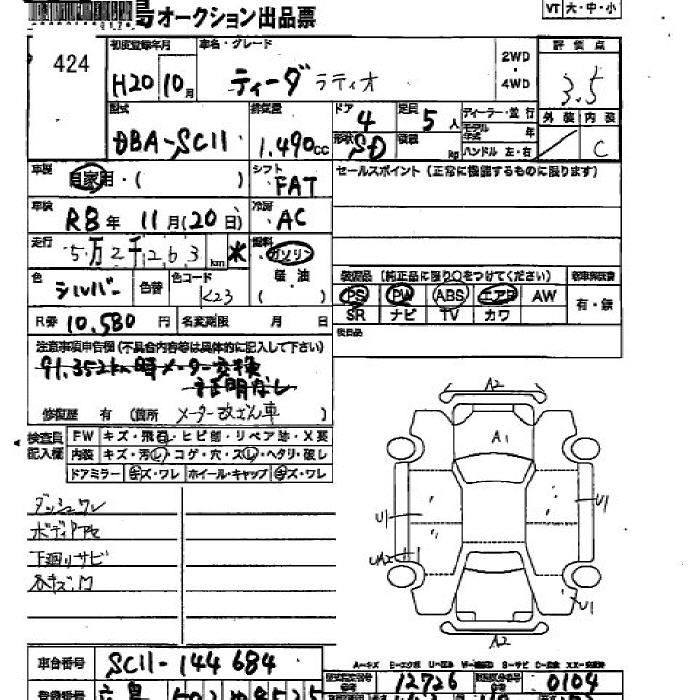 オークション出品票
VT 大・中・小
424
初度登録年月 車名・グレード 2WD・4WD 評価点
H20 10月 ティーダラティオ 3.5
型式 排気量 ドア 定員 ディーラー・並行 外装 内装
DBA-SC11 1.490cc 4 5人 モデル年式 年
形状 SD 積載 kg ハンドル 左・右 C
車歴 自家用・( ) シフト FAT セールスポイント(正常に機能するものに限ります)
車検 R8年 11月(20日) 冷房 AC
走行 5万2千263km 燃料 ガソリン
軽油 ( )
色 シルバー 色替 色コード K23
装備品(純正品に限り○をつけてください)
PS PW ABS エアB AW 有・無
SR ナビ TV カワ
R券 10,580円 名変期限 月 日
後日品
注意事項申告欄(不具合内容等は具体的に記入して下さい)
91.352km時メーター交換
証明なし
修復歴 有(箇所 メーター改ざん車)
検査員記入欄 FW キズ・飛石・ヒビ割・リペア跡・X要
内装 キズ・汚レ・コゲ・穴・スレ・ヘタリ・破レ
ドアミラー キズ・ワレ ホイール・キャップ キズ・ワレ
ダッシュワレ
下廻りサビ
A2
A1
U1
U1
U1
A2
車台番号 SC11-144684
A=キズ E=エクボ U=凹み W=補修跡 S=サビ C=腐食 XX=交換済
12726 0104